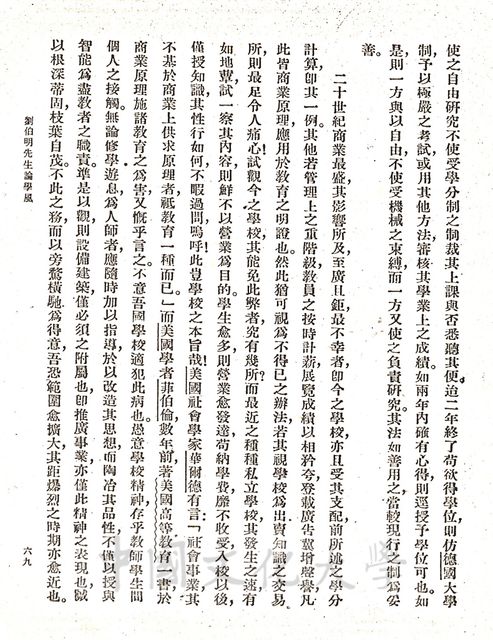 使之自由研究不使受學分制之制裁其上課與否悉聽其便迨二年終了苟欲得學位則仿德國大學
制予以極嚴之考試或用其他方法審核其學業上之成績如兩年內確有心得則逕授予學位可也如
是則一方與以自由不使受機械之束縛而一方又使之負責研究其法如善用之當較現行之制爲妥
善。
二十世紀商業最盛其影響所及至廣且鉅最不幸者即今之學校亦且受其支配前所述之學分
計算即其一例其他若管理上之重階級教員之按時計薪展覽成績以相矜夸登載廣告冀增聲譽凡
此皆商業原理應用於教育之明證也然此猶可視爲不得已之辦法若其視學校爲出賣知識之交易
所則最足令人痛心試觀今之學校其能免此弊者究有幾所而最近之種種私立學校其發生之速有
如地蕈試一察其內容則鮮不以營業爲目的學生愈多則營業愈發達苟納學費靡不收受入校以後
僅授知識其性行如何不暇過問嗚呼此豈學校之本旨哉美國社會學家華爾德有言「社會事業其
不基於商業上供求原理者祇教育一種而已」而美國學者菲伯倫數年前著美國高等教育一書於
商業原理施諸教育之爲害又慨乎言之不意吾國學校適犯此病也愚意學校精神存乎教師學生間
個人之接觸無論修學遊息爲人師者應隨時加以指導於以改造其思想而陶冶其品性不僅以授與
智能爲盡教者之職責準是以觀則設備建築僅必須之附屬也即推廣事業亦僅此精神之表現也誠
以根深蒂固枝葉自茂不此之務而以旁騖橫馳爲得意吾恐範圍愈擴大其距爆烈之時期亦愈近也。
劉伯明先生論學風
六九
中國文化大學